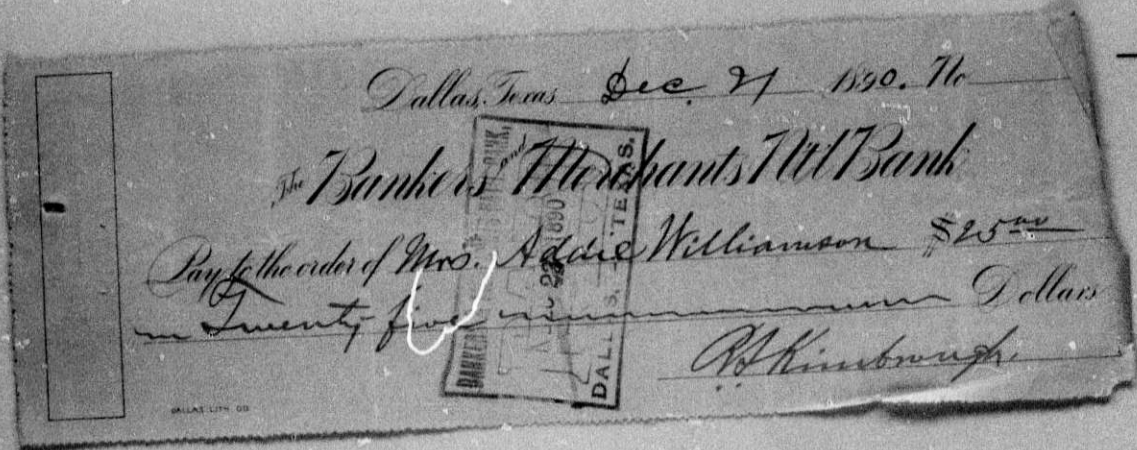 Dallas, Texas Dec. 21 1890. No
The Bankers and Merchants Ntl Bank
Pay to the order of Mrs. Addie Williamson $25 00
Twenty five Dollars
Kimbrough.
DALLAS, TEXAS.
DALLAS LITH. CO